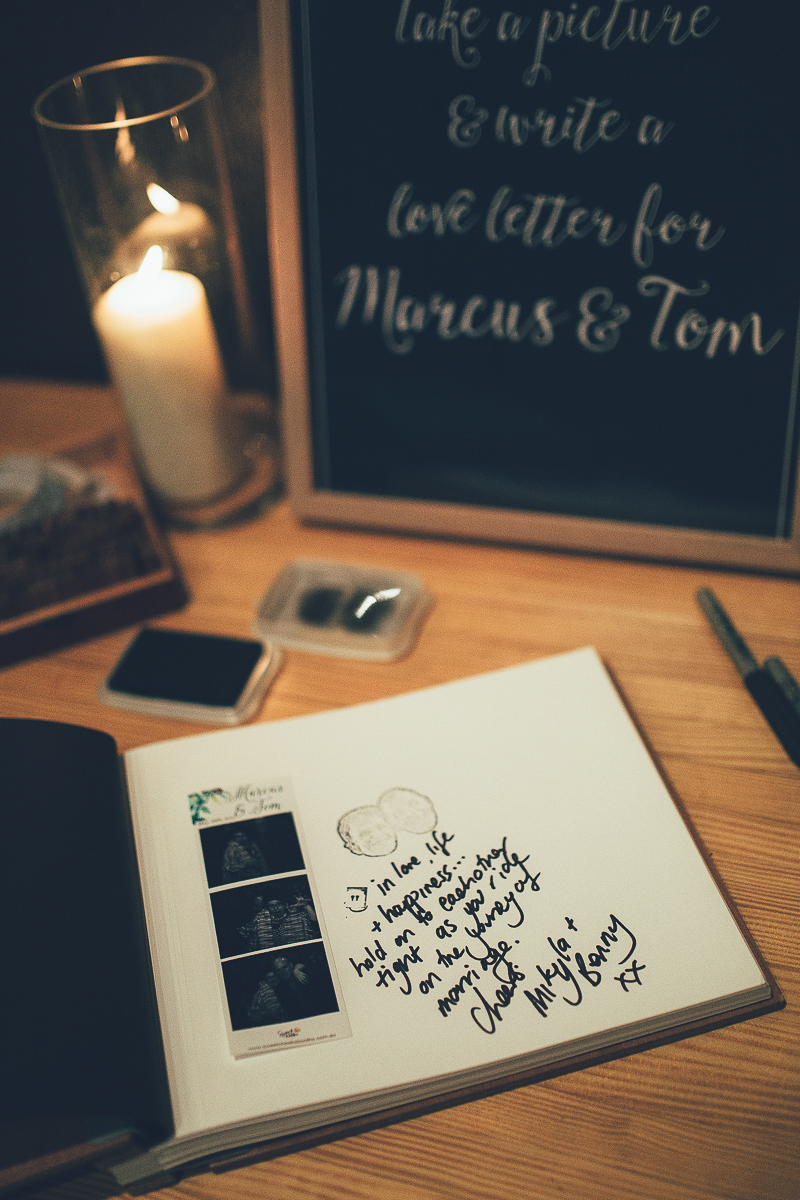 Take a picture
& write a
love letter for
Marcus & Tom
Marcus
& Tom
in love, life
+ happiness...
hold on to eachother
tight as you ride
on the journey of
marriage.
cheers
Mikyla +
Benny
xx